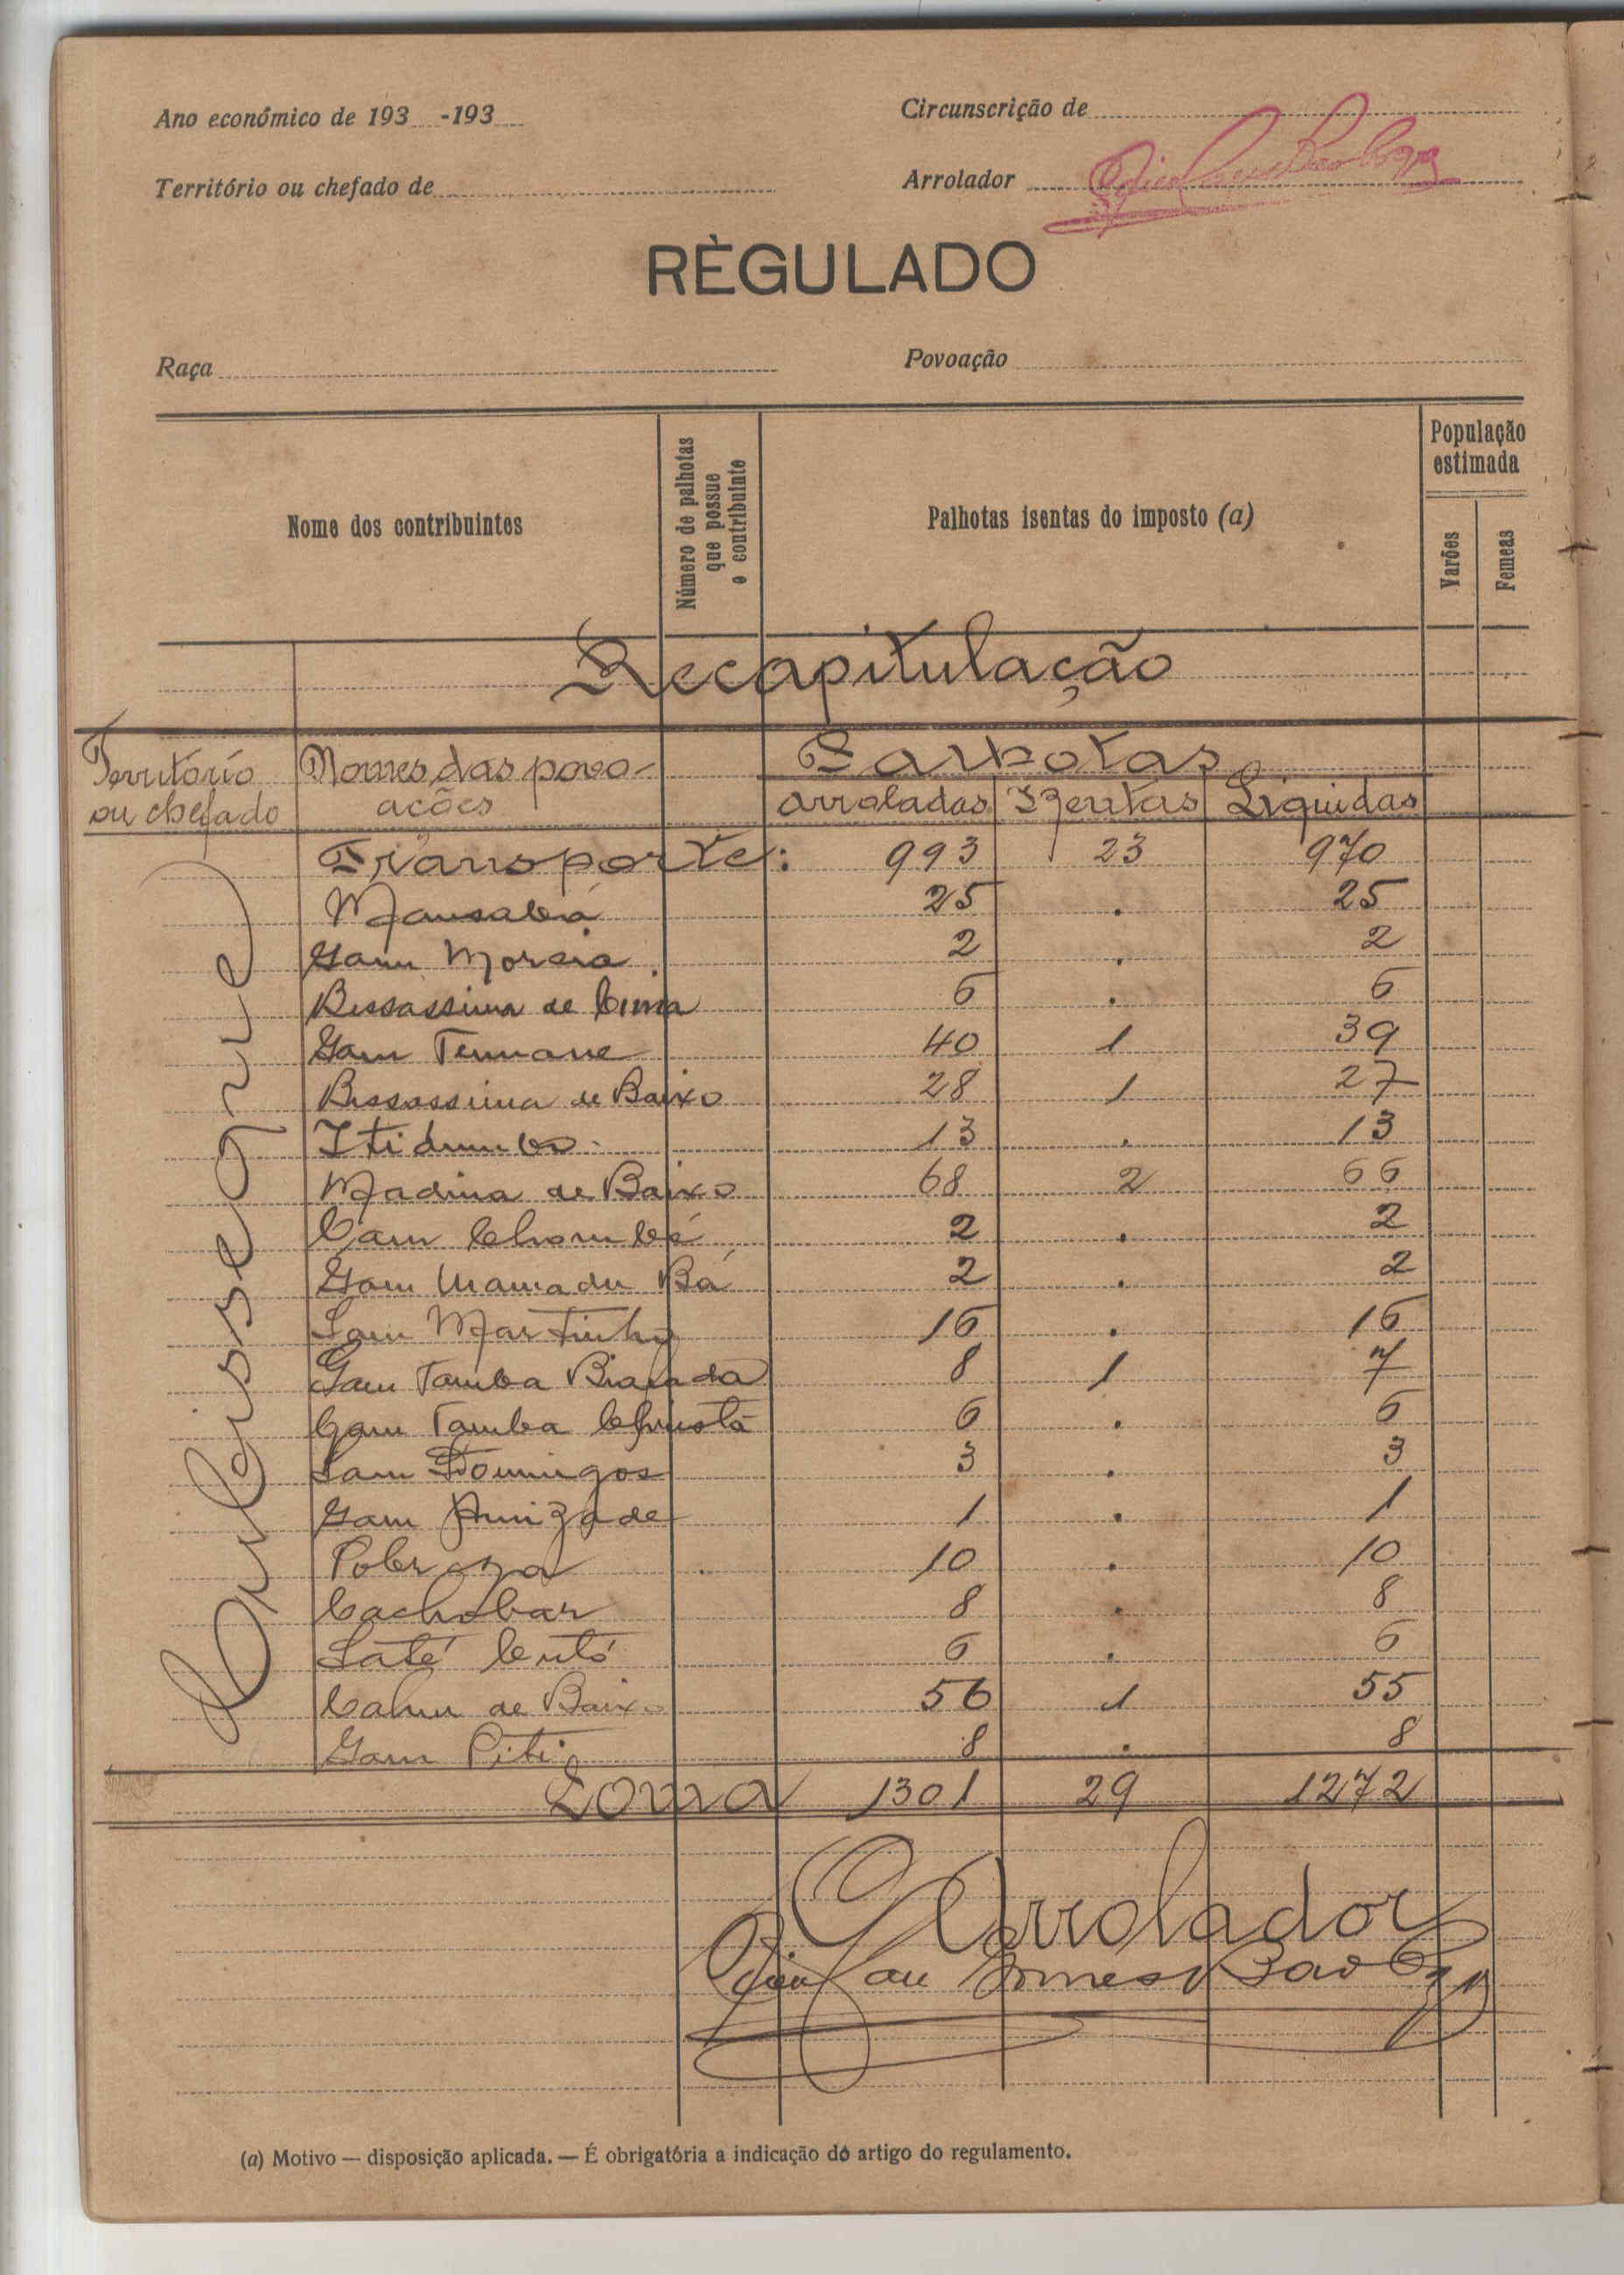 Ano económico de 193 -193
Circunscrição de
Território ou chefado de
Arrolador
RÈGULADO
Raça
Povoação
Nome dos contribuintes
Número de palhotas que possue o contribuinte
Palhotas isentas do imposto (a)
População estimada
Varões
Femeas
Recapitulação
Território ou chefado
Nomes das povoações
Palhotas
arroladas Izentas Liquidas
Transporte: 993 23 970
Mansabá 25 . 25
Gam Moreia 2 . 2
Bissassima de Cima 6 . 6
Gam Tennane 40 1 39
Bissassima de Baixo 28 1 27
Itidumbo 13 . 13
Madina de Baixo 68 2 66
Gam Chombé 2 . 2
Gam Mamadu Bá 2 . 2
Sam Martinho 16 . 16
Gam Tamba Biafada 8 1 7
Gam Tamba Christã 6 . 6
Sam Domingos 3 . 3
Gam Amizade 1 . 1
Pobreza 10 . 10
Cachobar 8 . 8
Saté 6 . 6
de Baixo 56 1 55
Gam Piti 8 . 8
Soma 1301 29 1272
O Arrolador
Gomes
(a) Motivo — disposição aplicada. — É obrigatória a indicação do artigo do regulamento.